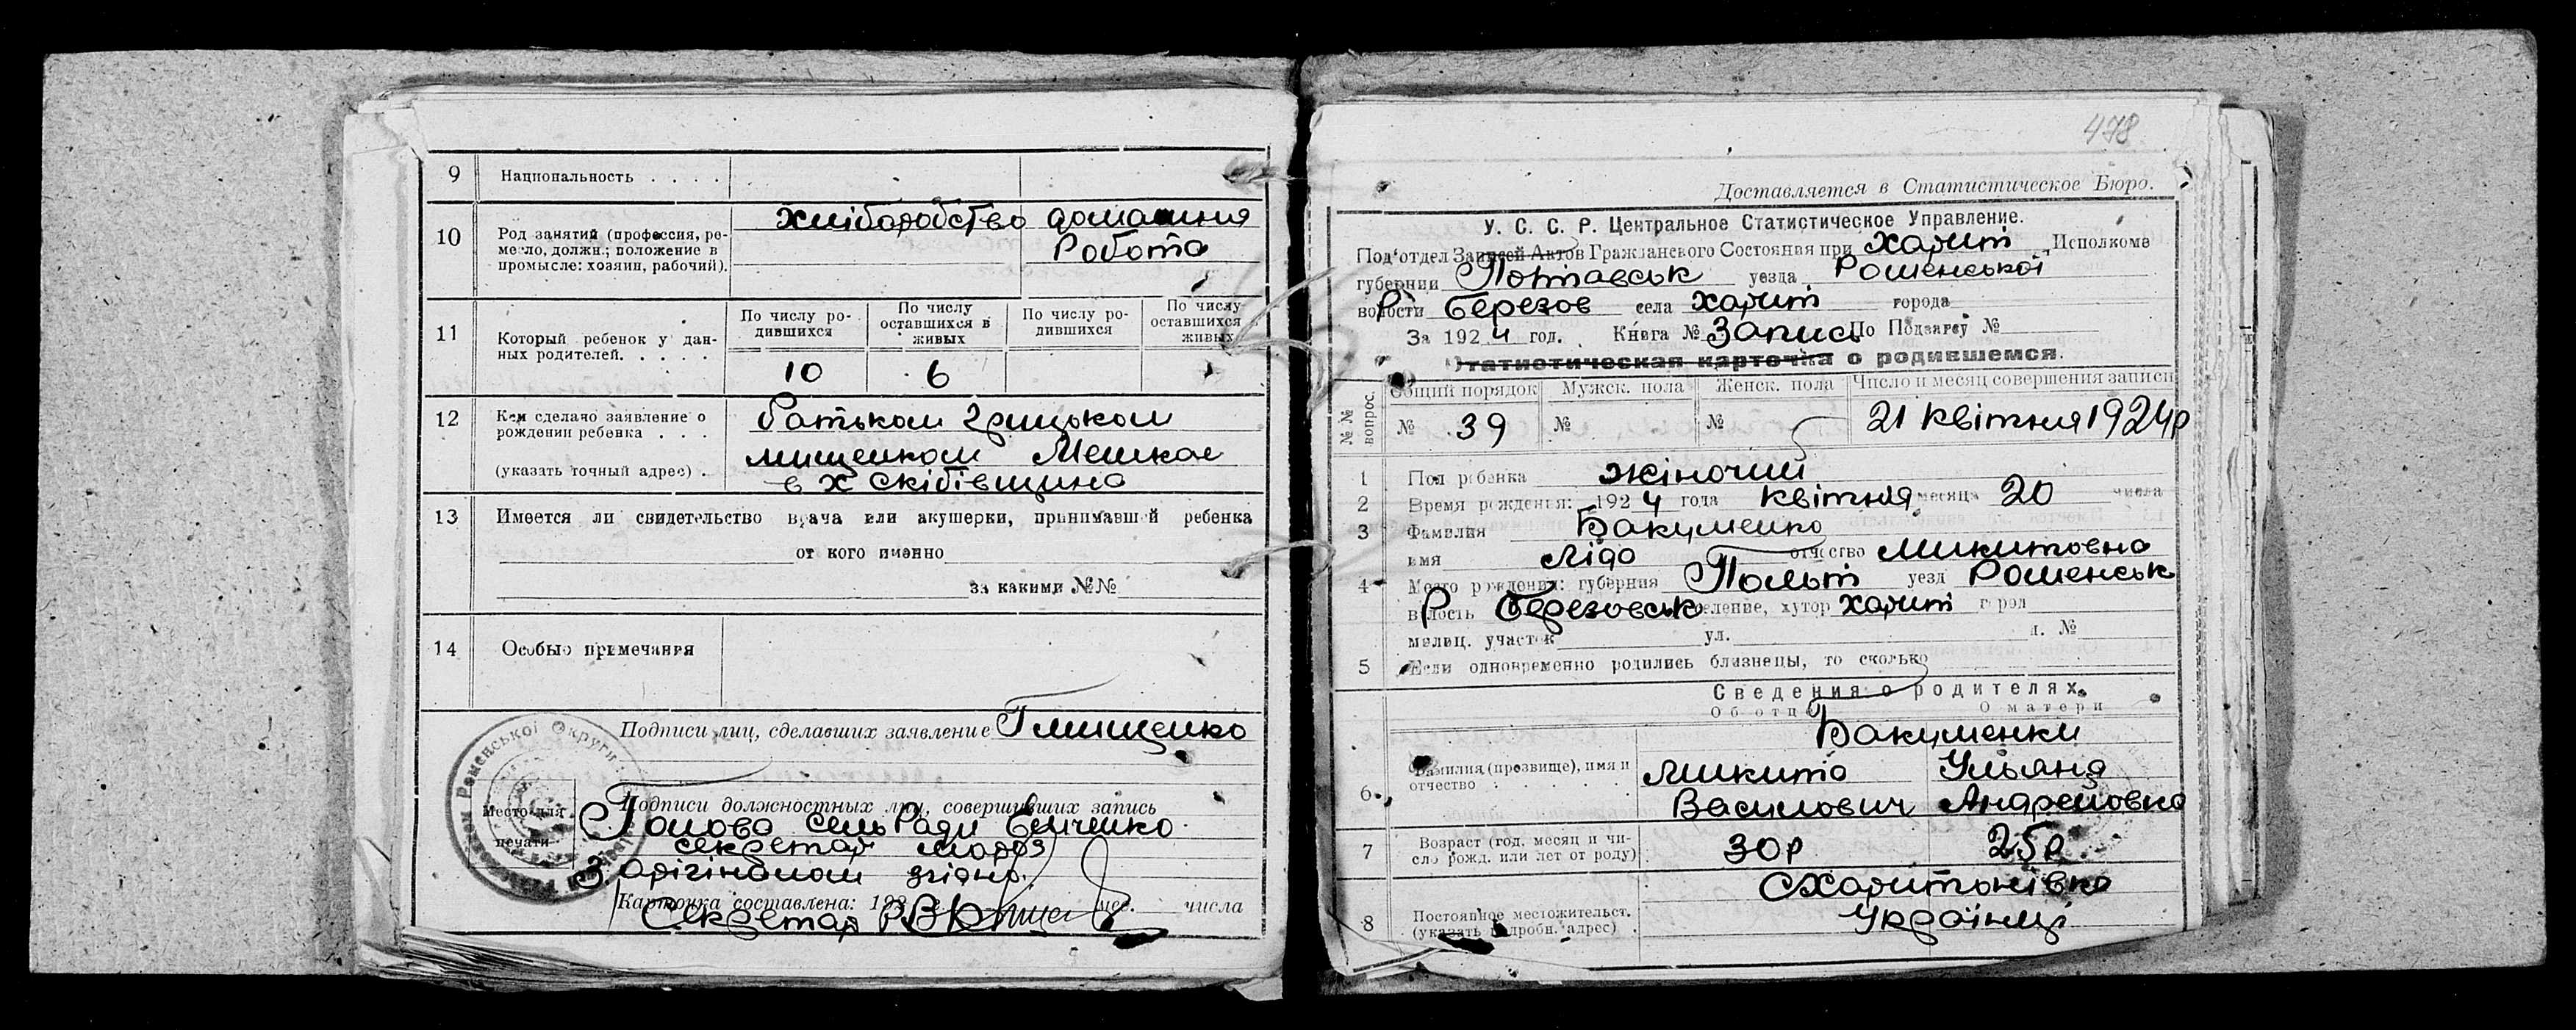 9 Национальность . . . .
10 Род занятий (профессия, ремесло, должн.; положение в промысле: хозяин, рабочий).
хліборобство домашня
Робота
11 Который ребенок у данных родителей. . . . .
По числу родившихся
По числу оставшихся в живых
По числу родившихся
По числу оставшихся в живых
10 6
12 Кем сделано заявление о рождении ребенка . . .
(указать точный адрес) .
батьком Грицьком
мищенком Мешкає
в х Скібівщина
13 Имеется ли свидетельство врача или акушерки, принимавшей ребенка
от кого именно
за какими №№
14 Особые примечания
Подписи лиц, сделавших заявление Г мищенко
Место для печати
Подписи должностных лиц, совершивших запись
Голова сель Ради
секретар мороз
З орігіналом згідно.
Карточка составлена: 192 г. мес. числа
Секретар
478
Доставляется в Статистическое Бюро.
У. С. С. Р. Центральное Статистическое Управление.
Под'отдел Записей Актов Гражданского Состояния при Харит Исполкоме
губернии Полтавськ уезда Роменської
волости Р Березов села Харит города
За 1924 год. Книга № Запись По Подзагсу №
Статистическая карточка о родившемся.
№№ вопрос.
Общий порядок Мужск. пола Женск. пола Число и месяц совершения записи
№ 39 № № 21 квітня 1924р
1 Пол ребенка жіночий
2 Время рождения: 1924 года квітня месяца 20 числа
3 Фамилия Бакуменко
имя Ліда отчество Микитовна
4 Место рождения: губерния Полт уезд Роменськ
волость Р Березовськ селение, хутор Харит город
милиц. участок ул. д. №
5 Если одновременно родились близнецы, то сколько
Сведения о родителях.
Об отце О матери
Бакуменки
6 Фамилия (прозвище), имя и отчество . . . . .
Микита Ульяна
Василович Андрейовна
7 Возраст (год, месяц и число рожд. или лет от роду)
30р 25р.
8 Постоянное местожительст. (указать подробн. адрес) .
С Харитонівка
Українці